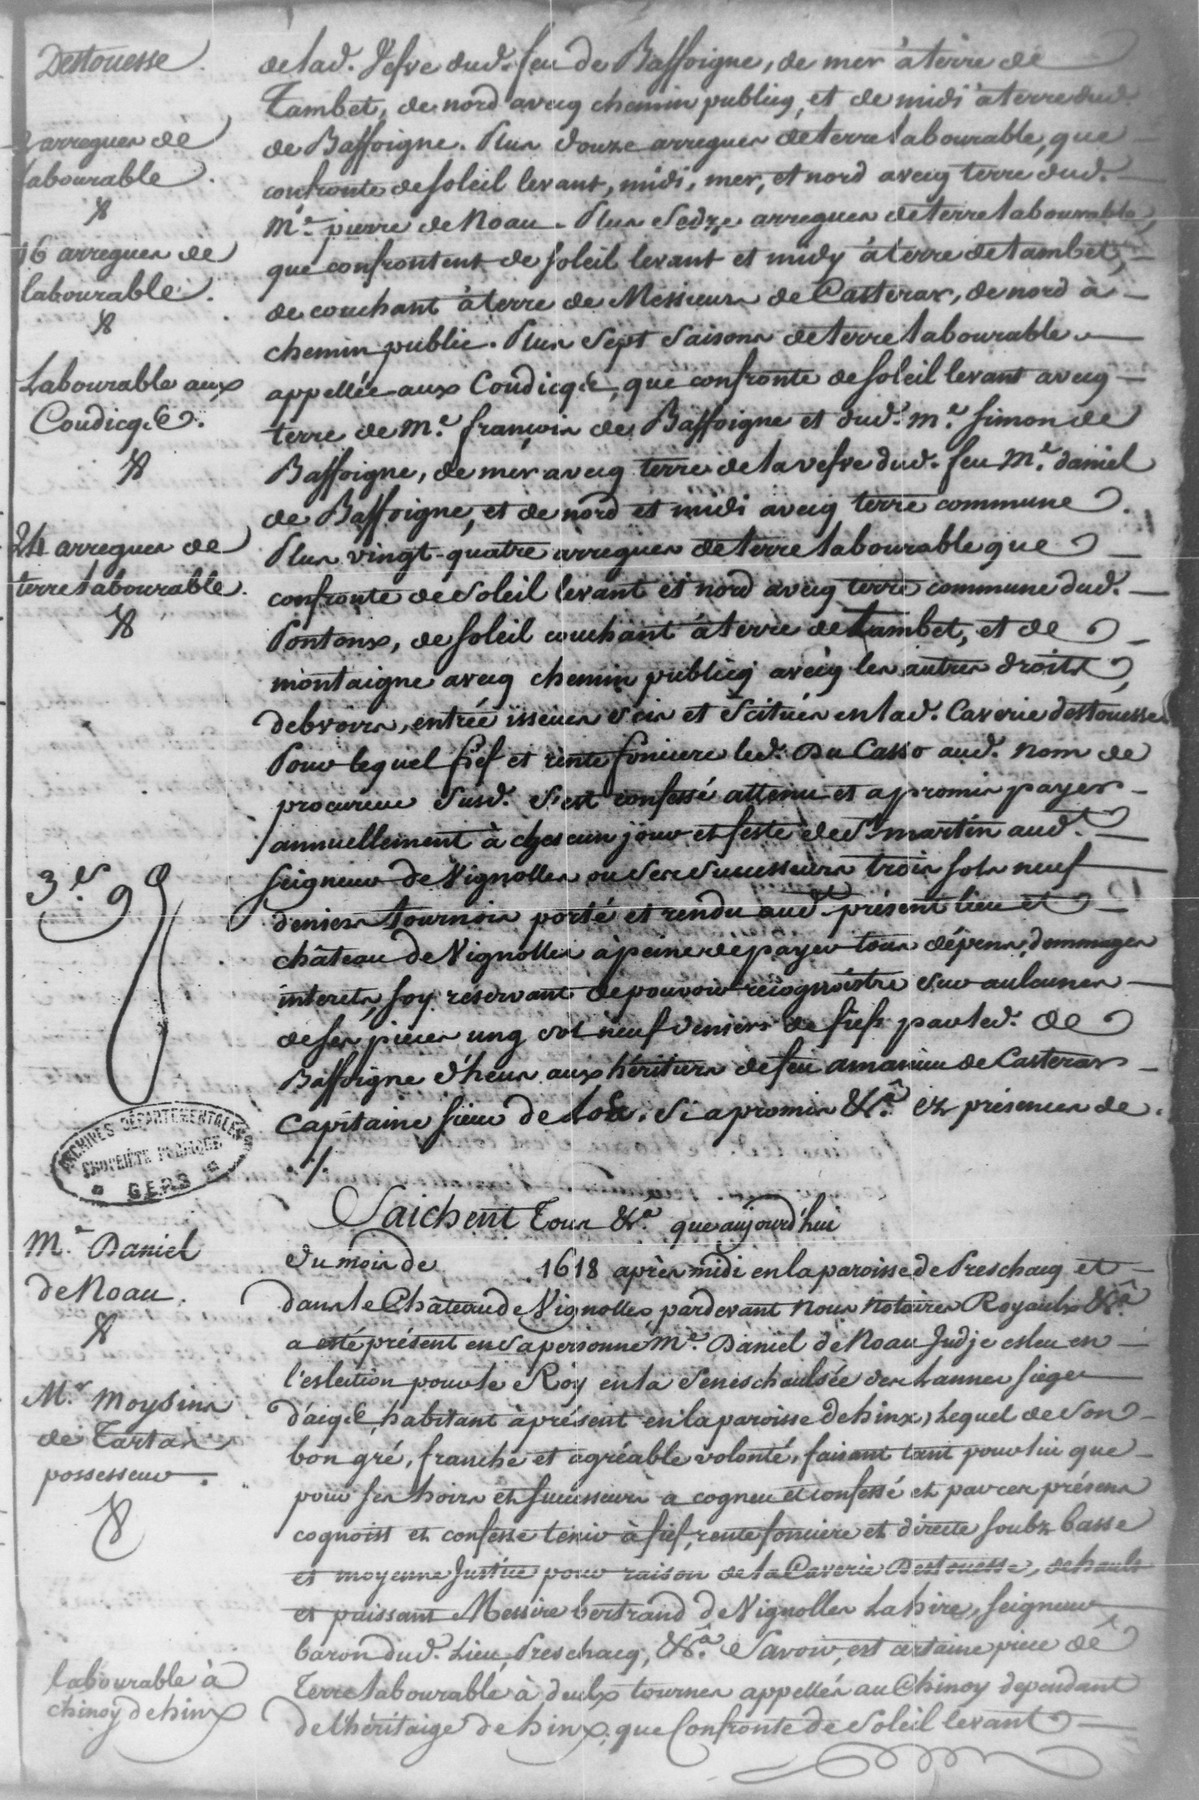 Destouesse.
de lad. Vefve dud. feu de Baffoigne, de mer à terre de
Tambet, de nord avecq chemin publicq, et de midi à terre dud.
arregues de
labourable.
de Baffoigne. Plus douze arregues de terre labourable, que
confronte de soleil levant, midi, mer, et nord avecq terre dud.
Me. pierre de Noau. Plus Sedze arregues de terre labourable,
16 arregues de
labourable.
que confrontent de soleil levant et midy à terre de tambet,
de couchant à terre de Messieurs de Casteras, de nord à
chemin public. Plus Sept Saisons de terre labourable
Labourable aux
Coudicqs.
appellée aux Coudicqs, que confronte de soleil levant avecq
terre de Me. françois de Baffoigne et dud. Me. Simon de
Baffoigne, de mer avecq terre de la vefve dud. feu Me. daniel
de Baffoigne, et de nord et midi avecq terre commune.
24 arregues de
terre labourable.
Plus vingt-quatre arregues de terre labourable que
confronte de soleil levant et nord avecq terre commune dud.
Pontonx, de soleil couchant à terre de Tambet, et de
montaigne avecq chemin publicq avecq les autres droits,
debvoirs, entrée issues scis et scitués en lad. Caverie destouesse
Pour lequel fief et rente fonciere led. Du Casso aud. nom de
procureur susd. s'est confessé attenu et a promis payer
annuellement à chescun jour et feste de St. martin aud.
3 s. 9 d
seigneur de Vignolles ou ses successeurs trois sols neuf
deniers tournois porté et rendu audt. présent lieu et
château de Vignolles a peine de payer tous dépens, dommages
interets, soy réservant de pouvoir recognoistre sur aulcunes
de ses pieces ung sol neuf deniers de fiefs par led. de
Baffoigne d'heus aux héritiers de feu amanieu de Casteras
Capitaine sieur de Si a promis &a. ez présences de.
./.
ARCHIVES DÉPARTEMENTALES
PROPRIÉTÉ PUBLIQUE
GERS
Saichent Tous &a. que aujourd'hui
Me. Daniel
de Noau.
du mois de 1618 après midi en la paroisse de Preschacq et
dans le Château de Vignolles, pardevant Nous Notaires Royaulx &a.
a esté présent en sa personne Me. Daniel de Noau Judje esleu en
l'eslection pour le Roy en la Seneschaulsée des Lannes siege
Mr. Moysins
de Tartas
possesseur.
d'aiqs, habitant à présent en la paroisse de hinx, Lequel de son
bon gré, franche et agréable volonté, faisant tant pour lui que
pour ses hoirs et successeurs a cogneu et confessé et par ces présens
cognoist et confesse tenir à fief, rente fonciere et directe soubz basse
et moyenne Justice pour raison de la Caverie Destouesse, de hault
et puissant Messire bertrand de Vignolles Lahire, seigneur
baron dud. Lieu, Preschacq, &a. Savoir, est certaine piece de
labourable à
chinoy de hinx
Terre labourable à deulx tournes appellés au Chinoy dependant
de l'héritaige de hinx, que Confronte de Soleil levant